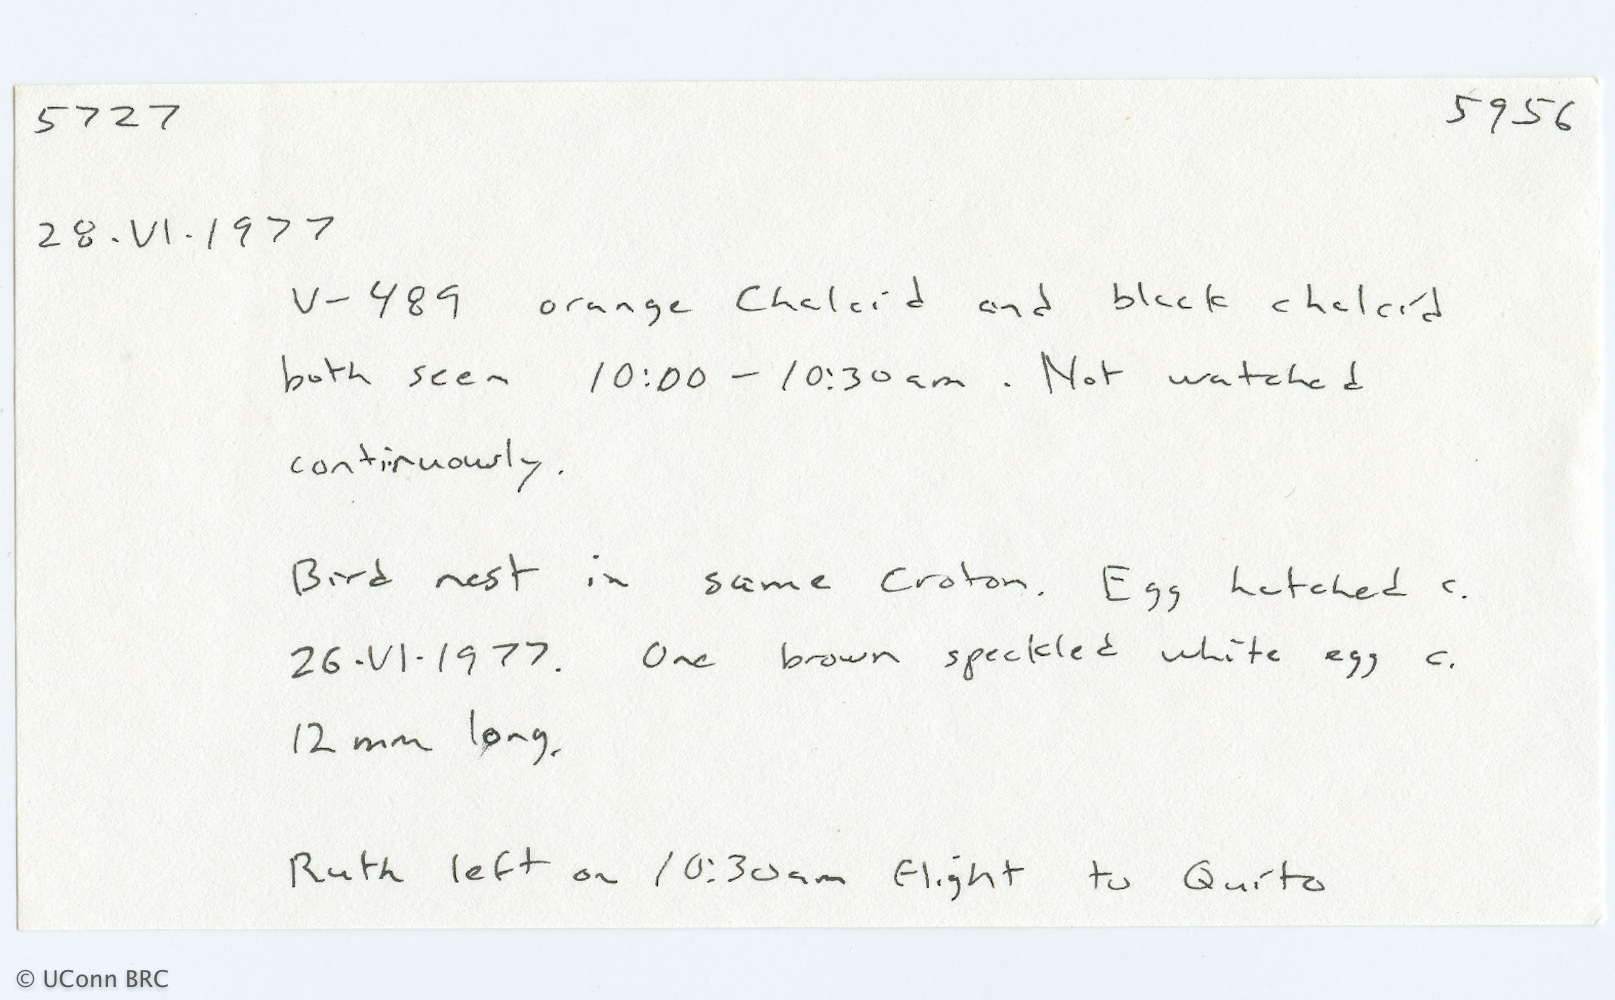 5727 5956
28.VI.1977
V-489 orange Chalcid and black chalcid
both seen 10:00 - 10:30 am. Not watched
continuously.
Bird nest in same Croton. Egg hatched c.
26.VI.1977. One brown speckled white egg c.
12 mm long.
Ruth left on 10:30 am flight to Quito
© UConn BRC